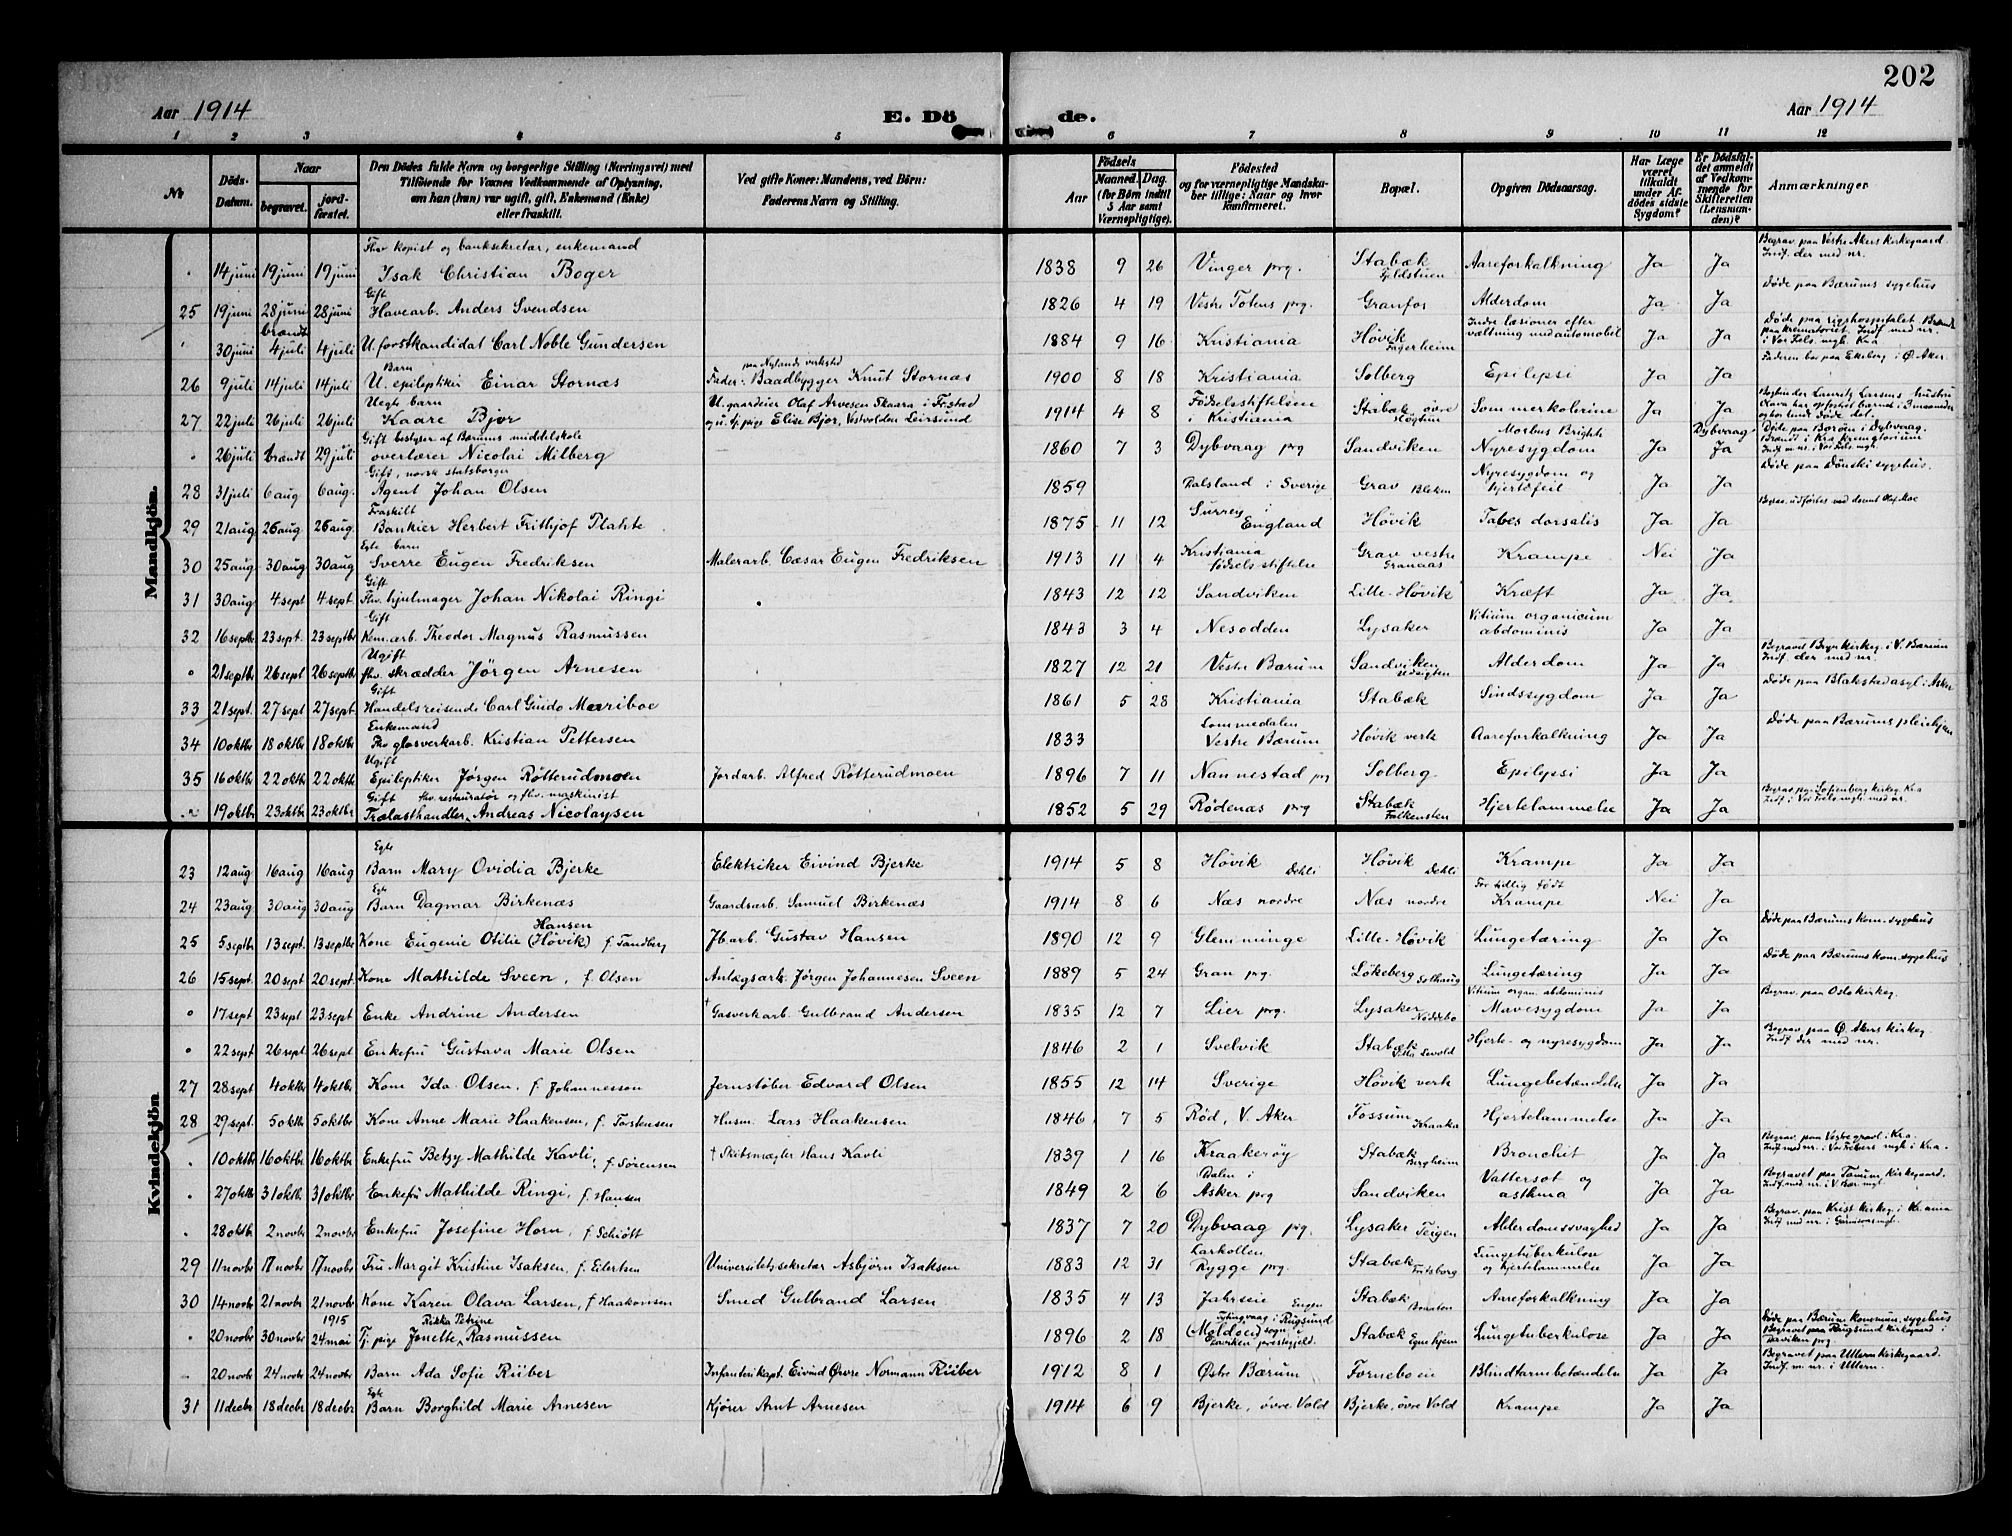 202
Aar 1914 E. Döde. Aar 1914
1 2 3 4 5 6 7 8 9 10 11 12
Nr
Döds-Datum.
Naar
begravet.
jordfæstet.
Den Dödes fulde Navn og borgerlige Stilling (Næringsvei) med
Tilföiende for Voxnes Vedkommende af Oplysning,
om han (hun) var ugift, gift, Enkemand (Enke)
eller fraskilt.
Ved gifte Koner: Mandens, ved Börn:
Faderens Navn og Stilling.
Födsels
Aar
Maaned.
Dag.
(for Börn indtil
3 Aar samt
Værnepligtige).
Födested
og for værnepligtige Mandskaber tillige: Naar og hvor konfirmeret.
Bopæl.
Opgiven Dödsaarsag.
Har Læge været tilkaldt under Afdödes sidste Sygdom?
Er Dödsfaldet anmeldt af Vedkommende for Skifteretten (Lensmanden)?
Anmærkninger
Mandkjön.
" 14 juni 19 juni 19 juni Fhv kopist og banksekretær, enkemand Isak Christian Boger 1838 9 26 Vinger prg. Stabæk Fjeldstuen Aareforkalkning Ja Ja Begrav. paa Vestre Akers kirkegaard. Indf. der med nr.
25 19 juni 28 juni 28 juni Gift Havearb. Anders Svendsen 1826 4 19 Vestre Totens prg. Granfos Alderdom Ja Ja Døde paa Bærums sygehus
" 30 juni brændt 4 juli 4 juli U. forstkandidat Carl Noble Gundersen 1884 9 16 Kristiania Høvik Fagerheim Indre læsioner efter væltning med automobil Ja Ja Døde paa rigshospitalet Brændt paa krematoriet. Indf. med nr. i Vor Fels. mgh. Kra
26 9 juli 14 juli 14 juli Barn U. epileptiker Einar Stornæs paa Nylands verksted Fader: Baadbygger Knut Stornæs 1900 8 18 Kristiania Solberg Epilepsi Ja Ja Faderen bor paa Ekeberg i Ø. Aker.
27 22 juli 26 juli 26 juli Uegte barn Kaare Bjor U. gaardeier Olaf Arvesen Skaara i Fr.stad og u. tj. pige Elise Bjor, Vestvolden Leirsund 1914 4 8 Fødselsstiftelsen Kristiania Stabæk øvre Sommerkolerine Ja Ja
" 26 juli brændt 29 juli Gift bestyrer af Bærums middelskole overlærer Nicolai Milberg 1860 7 3 Dybvaag prg Sandviken Morbus Brighti Nyresygdom Ja Dybvaag Ja Døde paa Borøen i Dybvaag. Brændt i Kra krematorium
28 31 juli 6 aug 6 aug. Gift, norsk statsborger Agent Johan Olsen 1859 Dalsland i Sverige Grav Bleken Nyresygdom og hjertefeil Ja Ja Døde paa Dønski sygehus.
29 21 aug 26 aug 26 aug. Fraskilt Bankier Herbert Frithjof Plahte 1875 11 12 Surrey i England Høvik Tabes dorsalis Ja Ja
30 25 aug 30 aug 30 aug Egte barn Sverre Eugen Fredriksen Malerarb. Cæsar Eugen Fredriksen 1913 11 4 Kristiania fødselsstiftelse Grav vestre Granaas Krampe Nei Ja
31 30 aug 4 sept 4 sept Gift Fhv. hjulmager Johan Nikolai Ringi 1843 12 12 Sandviken Lille-Høvik Kræft Ja Ja
32 16 septbr 23 sept. 23 septbr Gift Kem. arb. Theodor Magnus Rasmussen 1843 3 4 Nesodden Lysaker Vitium organicum abdominis Ja Ja
" 21 septbr 26 sept 26 septbr Ugift fhv. skrædder Jørgen Arnesen 1827 12 21 Vestre Bærum Sandviken Udsigten Alderdom Ja Ja Begravet Bryn kirkeg. i V. Bærum Indf. der med nr.
33 21 sept. 27 sept 27 sept. Gift Handelsreisende Carl Guido Merriboe 1861 5 28 Kristiania Stabæk Sindssygdom Ja Ja Døde paa Blakstad asyl i Asker
34 10 oktbr 18 oktbr 18 oktbr Enkemand Fhv glasverkarb. Kristian Pettersen 1833 Lommedalen Vestre Bærum Høvik verk Aareforkalkning Ja Ja Døde paa Bærums pleiehjem
35 16 oktbr 22 oktbr 22 oktbr Ugift Epileptiker Jørgen Røtterudmoen Jordarb. Alfred Røtterudmoen 1896 7 11 Nannestad prg Solberg Epilepsi Ja Ja
" 19 oktbr 23 oktbr 23 oktbr Gift fhv. restauratør og fhv. maskinist Trælasthandler Andreas Nicolaysen 1852 5 29 Rødenæs prg Stabæk Falkensten Hjertelammelse Ja Ja Begrav. paa Sofienberg kirkeg. Kra Indf. i Vor Fels mgh. med nr.
Kvindekjön
23 12 aug 16 aug 16 aug Egte Barn Mary Ovidia Bjerke Elektriker Eivind Bjerke 1914 5 8 Høvik Dehli Høvik Dehli Krampe Ja Ja
24 23 aug 30 aug 30 aug Egte Barn Dagmar Birkenæs Gaardsarb. Samuel Birkenæs 1914 8 6 Næs nordre Næs nordre For tidlig født Krampe Nei Ja
25 5 septbr 13 sept. 13 septbr Kone Eugenie Otilie Hansen (Høvik) f. Tandberg Jb. arb. Gustav Hansen 1890 12 9 Glemminge Lille-Høvik Lungetæring Ja Ja Døde paa Bærums kom. sygehus
26 15 sept. 20 sept 20 sept. Kone Mathilde Sveen, f. Olsen Anlægsarb. Jørgen Johannesen Sveen 1889 5 24 Gran prg. Løkeberg Solhaug Lungetæring Ja Ja Døde paa Bærums kom. sygehus
" 17 sept 23 sept 23 sept Enke Andrine Andersen † Gasverkarb. Gulbrand Andersen 1835 12 7 Lier prg. Lysaker Nøddebo Vitium organ. abdominis Mavesygdom Ja Ja Begrav. paa Oslo kirkeg.
" 22 sept 26 sept 26 sept Enkefru Gustava Marie Olsen 1846 2 1 Svelvik Stabæk Hjerte- og nyresygdom Ja Ja Begrav. paa Ø. Akers kirkeg. Indf. der med nr.
27 28 sept 4 oktbr 4 oktbr Kone Ida Olsen, f. Johannesson Jernstøber Edvard Olsen 1855 12 14 Sverige Høvik verk Lungebetændelse Ja Ja
28 29 sept. 5 oktbr 5 oktbr Kone Anne Marie Haakensen, f. Torstensen Husm. Lars Haakensen 1846 7 5 Rød, V. Aker Fossum Kraaka Hjertelammelse Ja Ja
" 10 oktbr 16 oktbr 16 oktbr Enkefru Betzy Mathilde Kavli, f. Sørensen † Skibsmægler Hans Kavli 1839 1 16 Kraakerøy Stabæk Bergheim Bronchit Ja Ja Begrav. paa Vestre gravl. i Kra.
" 27 oktbr 31 oktbr 31 oktbr Enkefru Mathilde Ringi, f. Hansen 1849 2 6 Dalen i Asker prg Sandviken Vattersot og asthma Ja Ja Begravet paa Tanum kirkegaard. Indf. med nr. i V. Bær. mgh.
" 28 oktbr 2 novbr 2 novbr Enkefru Josefine Horn, f. Schiøtt 1837 7 20 Dybvaag prg. Lysaker Teigen Alderdomssvaghed Ja Ja Begrav. paa Krist kirkeg. i Kr.ania Indf med nr. i Garnisons mgl.
29 11 novbr 17 novbr 17 novbr Fru Margit Kristine Isaksen, f. Eilertsen Universitetssekretær Asbjørn Isaksen 1883 12 31 Larkollen Rygge prg. Stabæk Fritsborg Lungetuberkulose og hjertelammelse Ja Ja
30 14 novbr 21 novbr 21 novbr Kone Karen Olava Larsen, f. Haakonsen Smed Gulbrand Larsen 1835 4 13 Stabæk Braaten Aareforkalkning Ja Ja
" 20 novbr 30 novbr 1915 24 mai Rikka Petrine Tj. pige Jonette Rasmussen 1896 2 18 Stabæk Egne hjem Lungetuberkulose Ja Ja Døde paa Bærum Kommun. sygehus Begravet paa Rugsund kirkegaard i Davikens prg
" 20 novbr 24 novbr 24 novbr Barn Ada Sofie Riiber Infanterikapt. Eivind Øvre Normann Riiber 1912 8 1 Østre Bærum Forneboeie Blindtarmbetændelse Ja Ja Begravet paa Ullern kirkegaard. Indf. m. nr. i Ullern.
31 11 decbr 18 decbr 18 decbr Egte Barn Borghild Marie Arnesen Kjører Arnt Arnesen 1914 6 9 Bjerke, øvre Vold Bjerke, øvre Vold Krampe Ja Ja